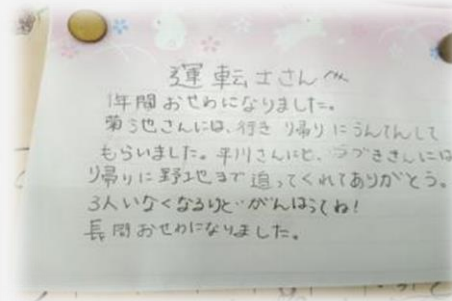 運転士さんへ
1年間おせわになりました。
菊池さんには、行き帰りにうんてんして
もらいました。平川さんにと、つづきさんには
帰りに野地まで追ってくれてありがとう。
3人いなくなるけどがんばってね!
長間おせわになりました。